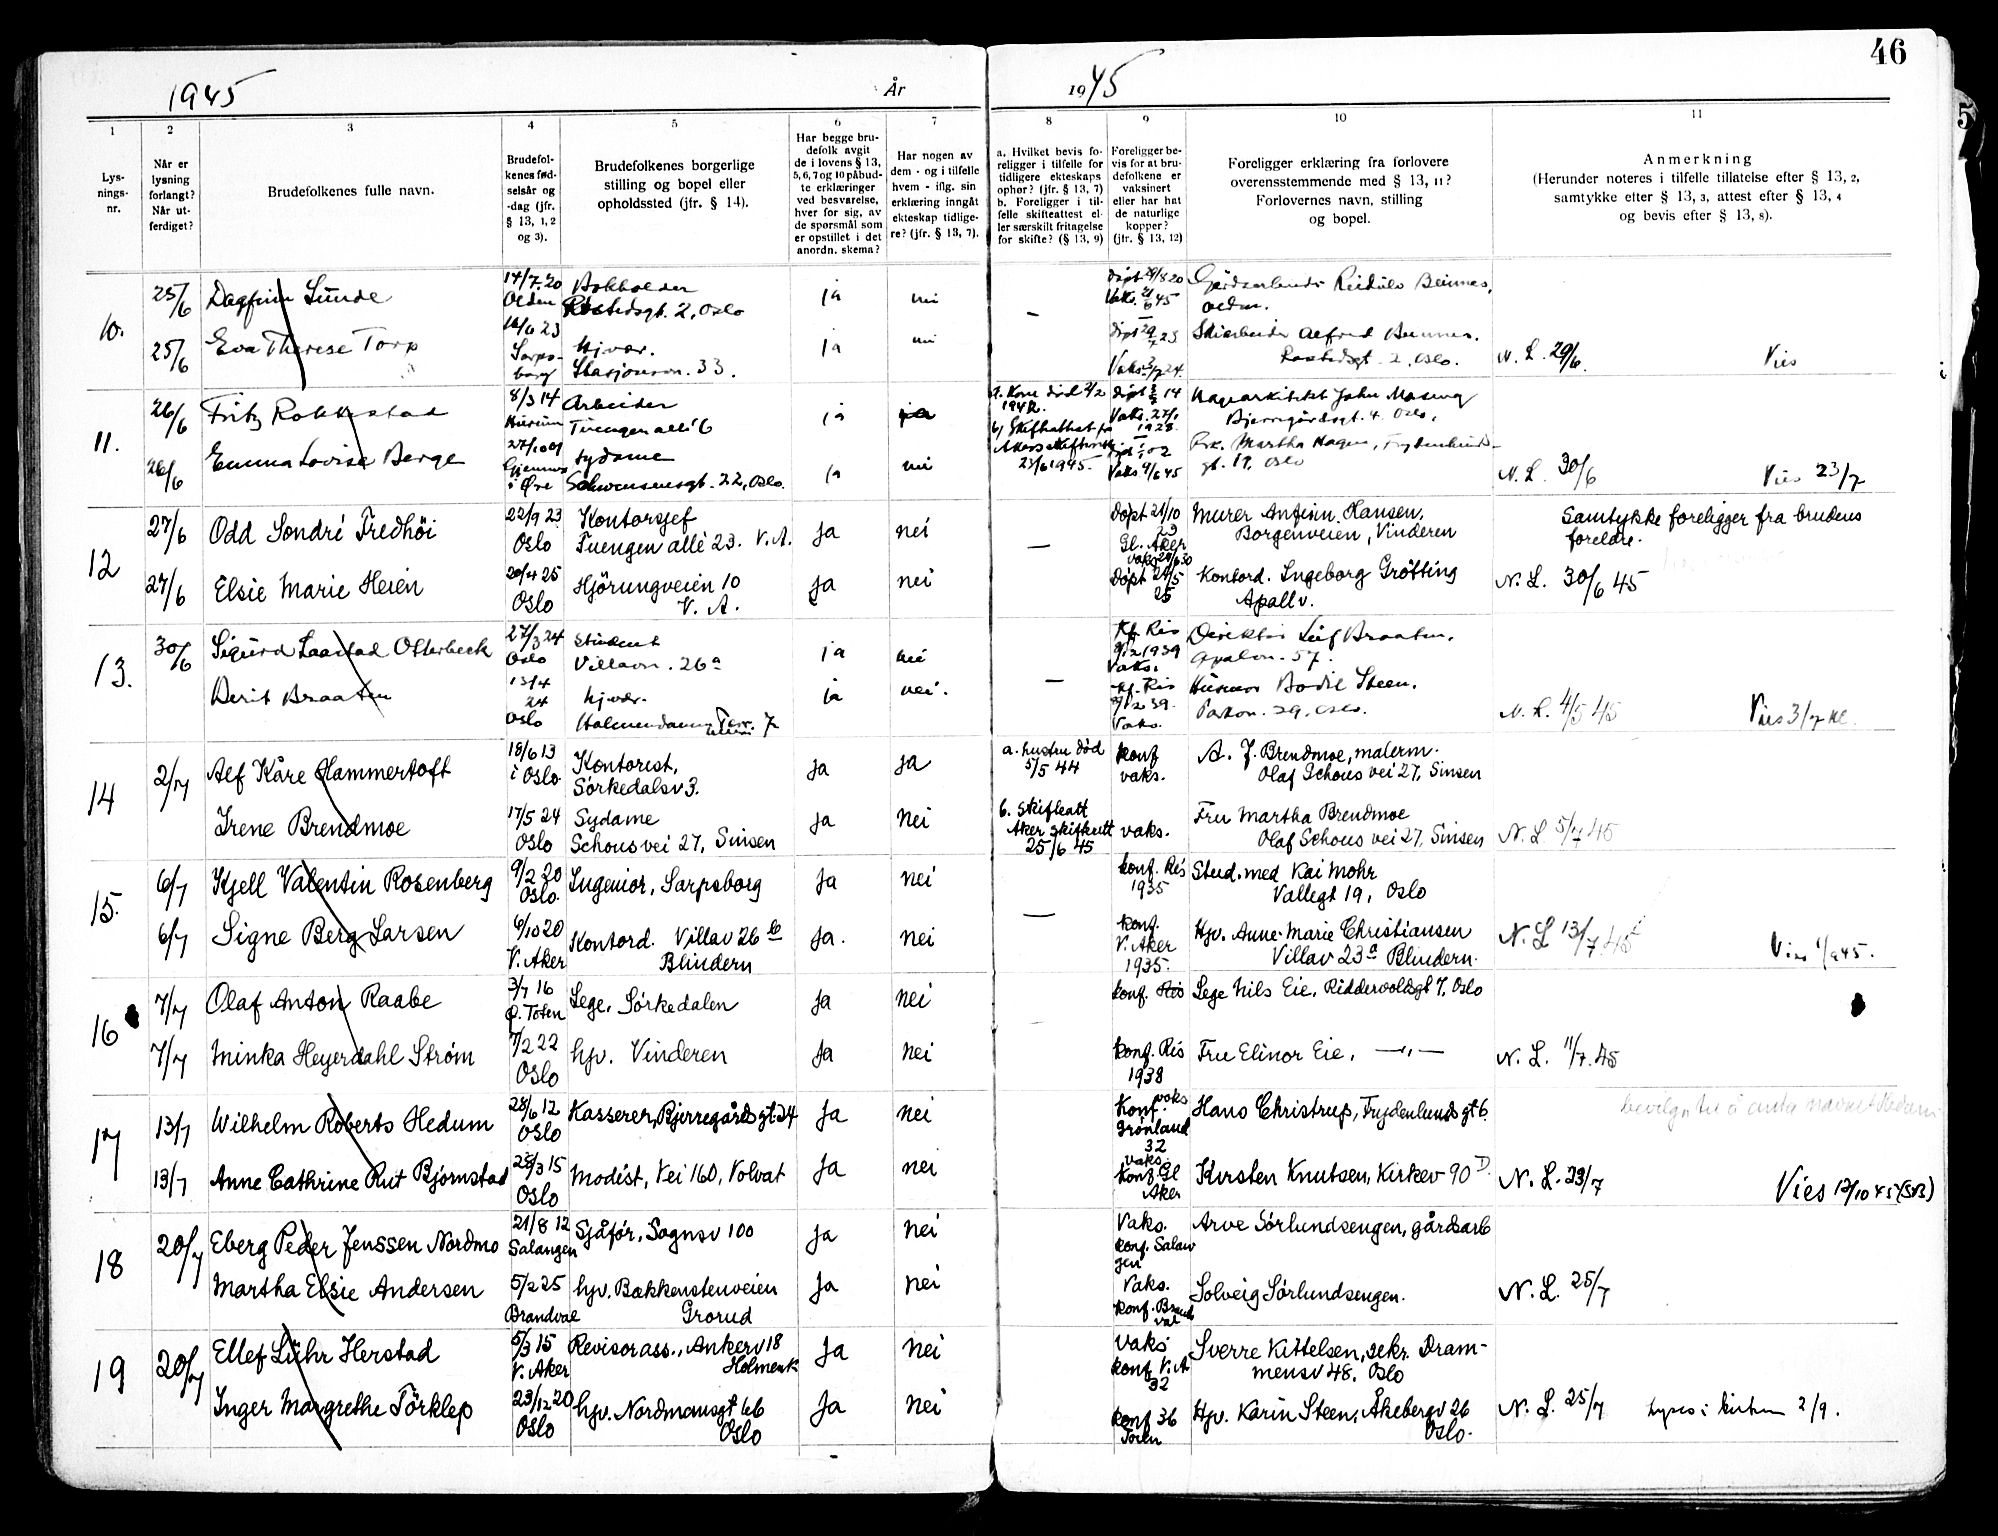 46
1945
År
1945
1
2
3
4
5
6
7
8
9
10
11
Lys-
nings-
nr.
Når er
lysning
forlangt?
Når ut-
ferdiget?
Brudefolkenes fulle navn.
Brudefol-
kenes fød-
selsår og
-dag (jfr.
§ 13, 1, 2
og 3).
Brudefolkenes borgerlige
stilling og bopel eller
opholdssted (jfr. § 14).
Har begge bru-
defolk avgit
de i lovens § 13,
5, 6, 7 og 10 påbud-
te erklæringer
ved besvarelse,
hver for sig, av
de spørsmål som
er opstillet i det
anordn. skema?
Har nogen av
dem - og i tilfelle
hvem - iflg. sin
erklæring inngått
ekteskap tidlige-
re? (jfr. § 13, 7).
a. Hvilket bevis fo-
religger i tilfelle for
tidligere ekteskaps
ophør? (jfr. § 13, 7)
b. Foreligger i til-
felle skifteattest el-
ler særskilt fritagelse
for skifte? (§ 13, 9)
Foreligger be-
vis for at bru-
defolkene er
vaksinert
eller har hat
de naturlige
kopper?
(jfr. § 13, 12)
Foreligger erklæring fra forlovere
overensstemmende med § 13, 11?
Forlovernes navn, stilling
og bopel.
Anmerkning
(Herunder noteres i tilfelle tillatelse efter § 13, 2,
samtykke efter § 13, 3, attest efter § 13, 4
og bevis efter § 13, 8).
10.
25/6 Dagfinn Sunde 14/7.20 Bokholder ja nei
Olden Rostedsgt. 2, Oslo
Døpt 29/8 20
Vaks. 45
25/6 Eva Therese Torp 23 Hjvær. ja nei
Sarps-
borg Stasjonsvn. 33.
Skiarbeider Alfred
Rostedsgt. 2, Oslo. N. L. 29/6. Vies
11.
26/6 Fritz Rokkestad 8/3 14 Arbeider ja ja
Hurum Tuengen allé 6
a. Kone død 2/2
1942.
14
Vaks. 27/1
1928
Hagearkitekt John
Bjerregårdsgt. 4. Oslo.
26/6 Emma Lovise Berge 27/10 09 Sydame ja nei
i Øre Schwensensgt. 22, Oslo.
23/6 1945.
Vaks 9/6 45
Frk. Martha Hagen, Frydenlunds-
gt. 19, Oslo
N. L. 30/6 Vies 23/7
12
27/6 Odd Sondré Fredhöi 22/9 23 Kontorsjef ja nei
Oslo Tuengen allè 23. V. A.
Döpt 21/10
23
Gl. Aker
Murer Anfinn Hansen,
Borgenveien, Vinderen
Samtykke foreligger fra brudens
foreldre.
27/6 Elsie Marie Heien 20/4 25 Hjörungveien 10 ja nei
Oslo V. A.
Döpt 24/5
25
Kontord. Ingeborg Gröтting
Apallv.
N. L. 30/6 45
13.
30/6 Sigurd Laastad Otterbeck 27/3 24 Student ja nei
Oslo Villavn. 26a
Kf. Ris
1939
Vaks.
Direktør Leif Braaten,
Apalvn. 57.
Berit Braaten 13/4 hjvær. ja nei.
24
Oslo Holmendammen Terr. 7
Kf. Ris
39.
Vaks.
Husmor Bodil Steen.
Parkvn. 29, Oslo.
N. L. 4/5 45 Vies 3/7 kl.
14
2/7 Alf Kåre Hammertoft 18/6 13 Kontorist, ja ja
i Oslo Sörkedalsv 3.
a. hustru död
5/5 44
konf
vaks.
A. J. Brendmoe, malerm.
Olaf Schous vei 27, Sinsen
Irene Brendmoe 17/5 24 Sydame ja nei
Oslo Schous vei 27, Sinsen
b. Skifteatt
Aker skifterett
25/6 45
vaks.
Fru Martha Brendmoe
Olaf Schous vei 27, Sinsen
N. L. 5/7 45
15.
6/7 Kjell Valentin Rosenberg 9/2 20 Ingeniör, Sarpsborg ja nei
Oslo.
konf. Ris
1935
Stud. med Kai Mohr
Vallegt 19, Oslo
6/7 Signe Berg Larsen 6/10 20 Kontord. Villav 26 b ja. nei
V. Aker Blindern
konf.
V. Aker
1935.
Hjv. Anne-Marie Christiansen
Villav 23a Blindern.
N. L 13/7 45 Vies 1/9 45.
16
7/7 Olaf Anton Raabe 3/7 16 Lege, Sörkedalen ja nei
Ø. Toten
konf. Ris Lege Nils Eie, Riddervoldsgt 7, Oslo
7/7 Minka Heyerdahl Strøm 7/2 22 hjv. Vinderen ja nei
Oslo
konf. Ris
1938
Fru Elinor Eie, —"—
N. L. 11/7. 45
17
13/7 Wilhelm Roberts Hedum 28/6 12 Kasserer, Bjerregårdsgt. 24 ja nei
Oslo
vaks
Konf.
Grönland
32
Hans Christrup, Frydenlundsgt 6.
bevilgn til å anta navnet Hedum
13/7 Anne Cathrine Rut Bjørnstad 28/3 15 Modist, Vei 160, Volvat ja nei
Oslo
vaks.
Konf. Gl
Aker
Kirsten Knutsen, Kirkev 90 D.
N. L. 23/7 Vies 12/10 45
18
20/7 Eberg Peder Jenssen Nordmo 21/8 12 Sjåför, Sognsv 100 ja nei
Salangen
Vaks.
konf. Salan
gen
Arve Sörlundsengen, gårdsarb
Martha Elsie Andersen 5/2 25 hjv. Bakkenstenveien ja nei
Brandval Grorud
Vaks.
konf. Brand
val
Solveig Sörlundsengen.
N. L. 25/7
19
20/7 Ellef Lühr Herstad 5/3 15 Revisorass., Ankerv 18 ja nei
V. Aker Holmenk
Vaks
konf V. A
32
Sverre Kittelsen, sekr. Dram-
mensv 48, Oslo
Inger Margrethe Törklep 23/12 20 hjv. Nordmansgt 66 ja nei
Oslo Oslo
konf 36
Hjv. Karin Steen, Åkebergv 26
Oslo.
N. L. 25/7 lyses i kirken 2/9.